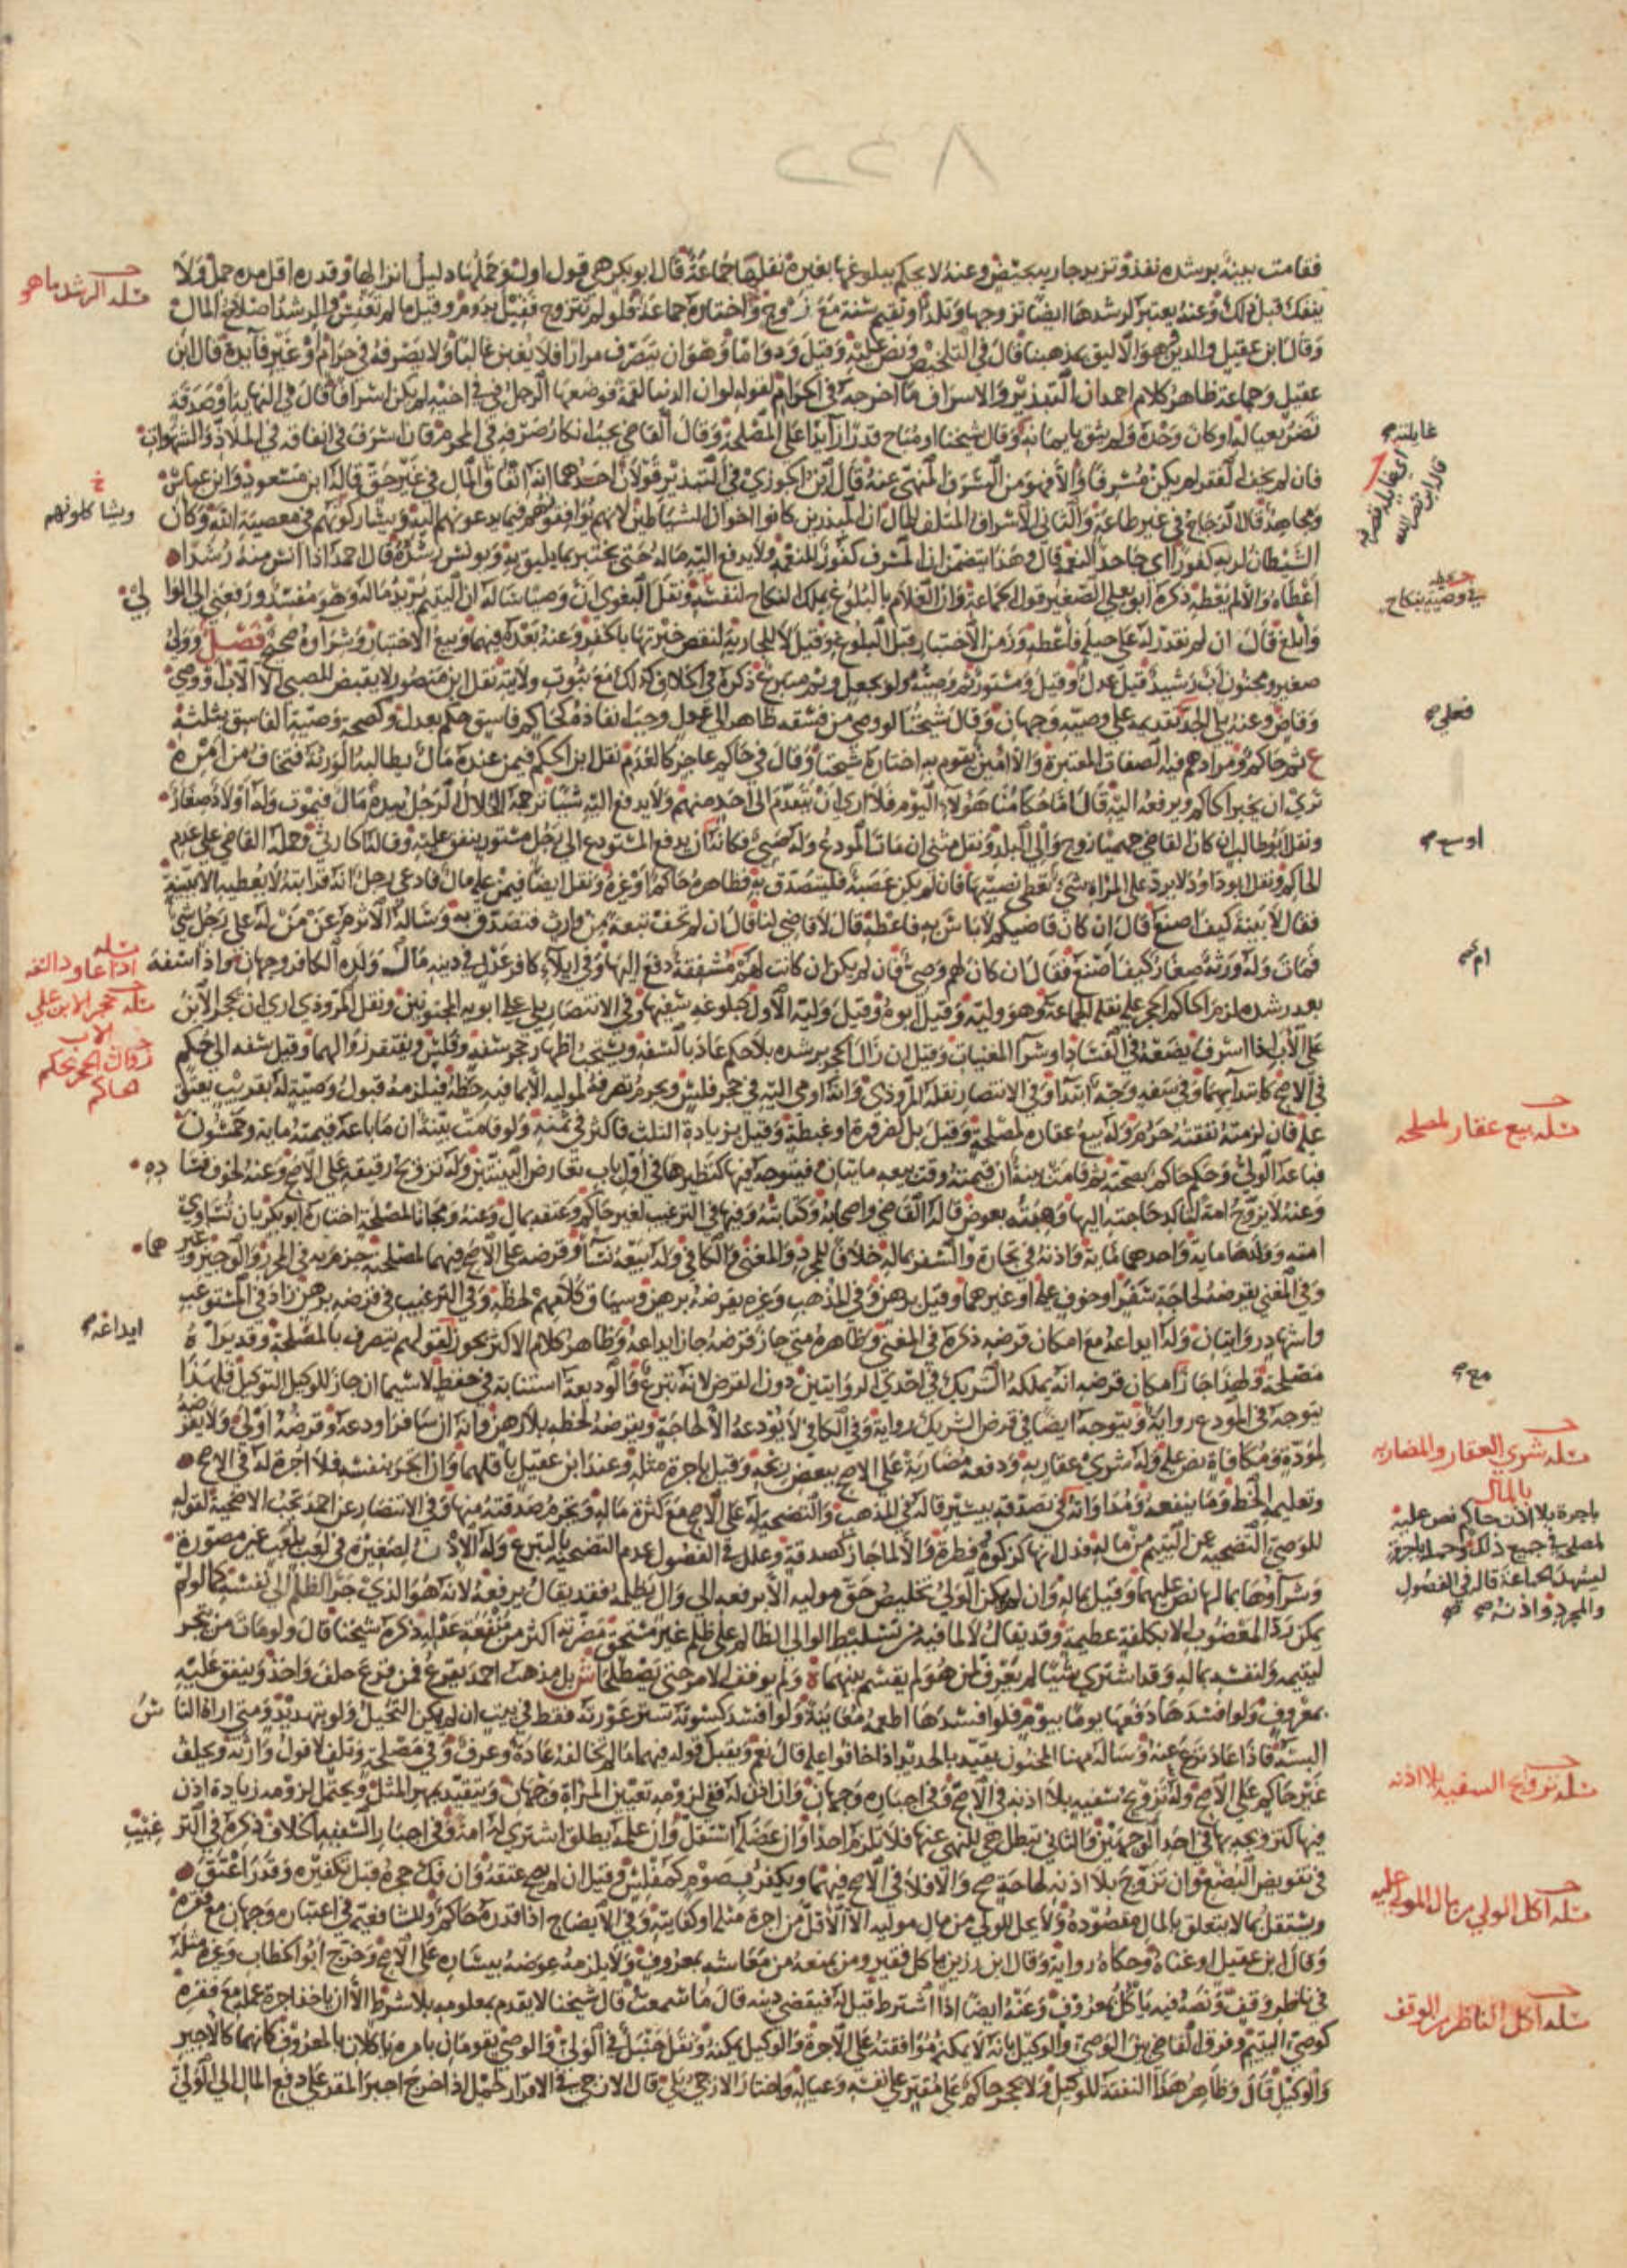 ٢٢٨
فقامت بينة برشده نفذ وتزيد جارية بحيض وعنه لا يحكم ببلوغها بغيره نقلها جماعة قال ابو بكر هي قول اول وحملها دليل انزالها وقدره اقل مدة حمل ولا
ينفك قبل ذلك وعنه يعتبر لرشدها ايضا تزوجها وتلد او تقيم سنة مع زوج واختاره جماعة فلو لم تتزوج فقيل يدوم وقيل ما لم تعنس والرشد اصلاح المال
وقال ابن عقيل والدين وهو الاليق بمذهبنا قال في التلخيص ونص عليه وقيل ودواما وهو ان يتصرف مرارا فلا يغبن غالبا ولا يصرفه في حرام او غير فائدة قال ابن
عقيل وجماعة ظاهر كلام احمد ان التبذير والاسراف ما اخرجه في الحرام لقوله لو ان الدنيا لقمة فوضعها الرجل في في اخيه لم يكن اسرافا قال في النهاية او صدقة
تضر بعياله او كان وحده ولم يثق بايمانه وقال شيخنا او مباح قدرا زائدا على المصلحة وقال القاضي يجب انكار صرفه في المحرم فان اسرف في انفاقه في الملاذ والشهوات
فان لم يخف الفقر لم يكن مسرفا والا فهو من السرف المنهي عنه قال ابن الجوزي في التبذير قولان احدهما انه انفاق المال في غير حق قاله ابن مسعود وابن عباس
ومجاهد قال الزجاج في غير طاعة والثاني الاسراف المتلف للمال ان المبذرين كانوا اخوان الشياطين لانهم يوافقونهم فيما يدعونهم اليه ويشاركونهم في معصية الله وكان
الشيطان لربه كفورا اي جاحدا لنعمه قال وهذا يتضمن ان المسرف كفور للنعم ولا يدفع اليه ماله حتى يختبر بما يليق به ويونس رشده قال احمد اذا انس منه رشدا
اعطاه والا لم يعطه ذكره ابو يعلى الصغير قول الجماعة وان الغلام بالبلوغ يملك النكاح لنفسه ونقل البغوي ان وصيا ساله ان اليتيم يريد ماله وهو مفسد ورفعني الى الوالي
وابلغ قال ان لم تقدر له على حيلة فاعطه وزمن الاختبار قبل البلوغ وقيل لا للجارية لنقص خبرتها بالخفر وعنه بعده فيهما وبيع الاختبار وشراؤه صحيح فصل وولي
صغير ومجنون اب رشيد قيل عدل وقيل ومستور ثم وصيه ولو بجعل وثم متبرع ذكره في الخلاف كذلك مع ثبوت ولايته نقل ابن منصور لا يقبض للصبي الا الاب او وصي
وقاض وعنه يلي الجد تقديمه على وصيه وجهان وقال شيخنا لو وصى من فسقه ظاهر الى عدل وجب انفاذه كحاكم فاسق حكم بعدل وكصحة وصية الفاسق بثلثه
ثم حاكم ومرادهم فيه الصفات المعتبرة والا امين يقوم به اختاره شيخنا وقال في حاكم عاجز كالعدم نقل ابن الحكم فيمن عنده مال يطالبه الورثة فتخاف من امره
ترى ان يخبر الحاكم ويرفعه اليه قال اما حكامنا هؤلاء اليوم فلا ارى ان يتقدم الى احد منهم ولا يدفع اليه شيئا ترجمه الخلال الرجل بيده مال فيموت وله اولاد صغار
ونقل ابو طالب ان كان القاضي جهميا زوج والي البلد ونقل مثنى ان مات المودع وله صبي فكانه ان يدفع المستودع الى رجل مستور ينفق عليه وقاله الحارثي وحمله القاضي على عدم
الحاكم ونقل ابو داود لا يرد على المراة شيء تعطى نصيبها فان لم يكن عصبة فليتصدق به فظاهره حاكما او غيره ونقل ايضا فيمن عليه مال فادعى رجل انه قرابته لا يعطيه الا ببينة
فقال لا بينة كيف اصنع قال ان كان قاضيكم لا باس به فاعطه قال لا قاضي لنا قال ان لم تخف تبعة من وارث فتصدق به وساله الاثرم عن من له على رجل شيء
فمات وله ورثة صغار كيف اصنع فقال ان كان لهم وصي فان لم يكن ان كانت لهم ام مشفقة دفع اليها وفي ايلاء كافر عدل في دينه مال ولده الكافر وجهان واذا سفه
بعد رشده لزم الحاكم الحجر عليه نقله الجماعة وهو وليه وقيل ابوه وقيل وليه الاول كبلوغه سفيها وفي الانتصار يلي على ابويه المجنونين ونقل المروذي ارى ان يحجر الابن
على الاب اذا اسرف يضعه في الفساد او شراء المغنيات وقيل ان زال الحجر برشده بلا حكم عاد بالسفه ويستحب اظهار حجر سفه وفلس ويفتقر زوالهما وقيل سفه الى حكم
في الاصح كابتدائهما وفي سفه وجه ابتداء وفي الانتصار نقله المروذي وانه اومى اليه في حجر فلس ويحرم تصرفه لموليه الا بما فيه حظه فيلزمه قبول وصية له بقريب يعتق
عليه فان لزمته نفقته حرم وله بيع عقاره لمصلحة وقيل بل لضرورة او غبطة وقيل بزيادة الثلث فاكثر في ثمنه ولو قامت بينة ان ما باعه قيمته مائة وخمسون
فباعه الولي وحكم حاكم بصحته ثم قامت بينة ان قيمته وقت بيعه مائتان فيتوجه فيها كنظيرها في اول باب تعارض البينتين وله تزويج رقيقه على الاصح وعنه لخوف فساده
وعنه لا يزوج امة لتاكد حاجته اليها وهبته بعوض قاله القاضي واصحابه وكتابته وفيها في الترغيب لغير حاكم وعتقه بمال وعنه ومجانا لمصلحة اختاره ابو بكر بان تساوي
امته وولدها مائة واحدهما مائة واذنه في تجارة والسفر بماله خلافا للمجرد والمغني والكافي وله بيعه نساء وقرضه على الاصح فيهما لمصلحة جزم به في المحرر والوجيز وغيرهما
وفي المغني يقرضه لحاجة سفر او خوف عليه او غيرهما وقيل برهن وفي المذهب وغيره يقرضه برهن وسياق كلامهم لحظه وفي الترغيب في قرضه برهن زاد في المستوعب
واشهاد روايتان وله ايداعه مع امكان قرضه ذكره في المغني وظاهره متى جاز قرضه جاز ايداعه وظاهر كلام الاكثر يجوز لقولهم يتصرف بالمصلحة وقد يراه
مصلحة ولهذا جاز مع امكان قرضه انه يملكه الشريك في احدى الروايتين دون القرض لانه تبرع والوديعة استنابة في حفظ لا سيما ان جاز للوكيل التوكيل فلهذا
يتوجه في المودع رواية ويتوجه ايضا في قرض الشريك رواية وفي الكافي لا يودعه الا لحاجة ويقرضه لحظه بلا رهن وانه ان سافر اودعه وقرضه اولى ولا يقرضه
لمودة ومكافاة نص عليه وله شرى عقار به ودفعه مضاربة على الاصح ببعض ربحه وقيل باجرة مثله وعند ابن عقيل باقلهما وان اتجر بنفسه فلا اجرة له في الاصح
وتعليمه الخط وما ينفعه ومداواته في تصدقه بيسير قاله في المذهب والتضحية له على الاصح مع كثرة ماله وتحرم صدقته منها وفي الانتصار عن احمد تجب الاضحية لقوله
للوصي التضحية عن اليتيم من ماله فدل انها كزكوة وفطرة والا لما جاز كصدقة وعلل في الفصول عدم التضحية بالتبرع وله الاذن لصغيرة في لعب بلعب غير مصورة
وشراؤها بمالها نص عليهما وقيل بماله وان لم يمكن الولي تخليص حق موليه الا برفعه الى وال يظلمه فقد يقال يرفعه لانه هو الذي جر الظلم الى نفسه كما لو لم
يمكن رد المغصوب الا بكلفة عظيمة وقد يقال لا لما فيه من تسليط الوالي الظالم على ظلم غير مستحق مضرته اكثر من منفعة عدله ذكره شيخنا قال ولو مات من يتجر
ليتيمه ولنفسه بماله وقد اشترى شيئا لم يعرف لمن هو لم يقسم بينهما ولم يوقف الامر حتى يصطلحا بل مذهب احمد يقرع فمن قرع حلف واخذ وينفق عليه
بمعروف ولو افسدها دفعها يوما بيوم فلو افسدها اطعمه معاينة ولو افسد كسوته ستر عورته فقط في بيت ان لم يمكن التحيل ولو بتهديد ومتى اراه الناس
البسه فاذا عاد نزع عنه وساله مهنا المجنون يقيد بالحديد اذا خافوا عليه قال نعم ويقبل قوله فيهما ما لم يخالف عادة وعرف وفي مصلحة وتلف لا قول وارثه ويحلف
غير حاكم على الاصح وله تزويج سفيه بلا اذنه في الاصح وفي اجباره وجهان وان اذن له ففي لزومه تعيين المراة وجهان ويتقيد بمهر المثل ويحتمل لزومه زيادة اذن
فيها كتزويجه بها في احد الوجهين والثاني تبطل هي للنهي عنها فلا تلزم احدا وان عضله استقل وان علمه يطلق اشترى له امة وفي اجبار السفيه الخلاف ذكره في الترغيب
في تفويض البضع وان تزوج بلا اذنه لحاجة صح والا فلا في الاصح فيهما ويكفر بصوم كمفلس وقيل ان لم يصح عتقه وان فك حجره قبل تكفيره وقدر اعتق
ويستقل بما لا يتعلق بالمال مقصوده ولا يحل للولي من مال موليه الا الاقل من اجرة مثله او كفايته وفي الايضاح اذا قدره حاكم وللشافعية في اعتباره وجهان مع فقره
وقال ابن عقيل او غناه وحكاه رواية وقال ابن رزين ياكل فقير ومن يمنعه من معاشه بمعروف ولا يلزمه عوضه بيساره على الاصح وخرج ابو الخطاب وغيره مثله
في ناظر وقف ونصه فيه ياكل بمعروف وعنه ايضا اذا اشترط قيل له فيقضي دينه قال ما سمعت قال شيخنا لا يقدم بمعلومه بلا شرط الا ان ياخذ اجرة عمله مع فقره
كوصي اليتيم وفرق القاضي بين الوصي والوكيل بانه لا يمكنه موافقته على الاجرة والوكيل يمكنه ونقل حنبل في الولي والوصي يقومان بامره ياكلان بالمعروف كانهما كالاجير
والوكيل قال وظاهر هذا النفقة للوكيل ولا يحجر حاكم على مقتر على نفسه وعياله واختار الازجي بلى قال الازجي في الاقرار لحمل اذا خرج اجبر المقر على دفع المال الى الولي
مسله الرشد ما هو
ويشاكلونهم
مسله اذا عاود السفه
مسله حجر الابن على الاب
زوال الحجر بحكم حاكم
ايداعه
في وصيته بنكاح
فعلى
اوسع
ام
مسله بيع عقار لمصلحه
مع
مسله شرى العقار والمضاربه بالمال
باجرة بلا اذن حاكم نص عليه
والمجرد واذنه
مسله تزويج السفيه بلا اذنه
مسله اكل الولي من مال المولى عليه
مسله اكل الناظر من الوقف